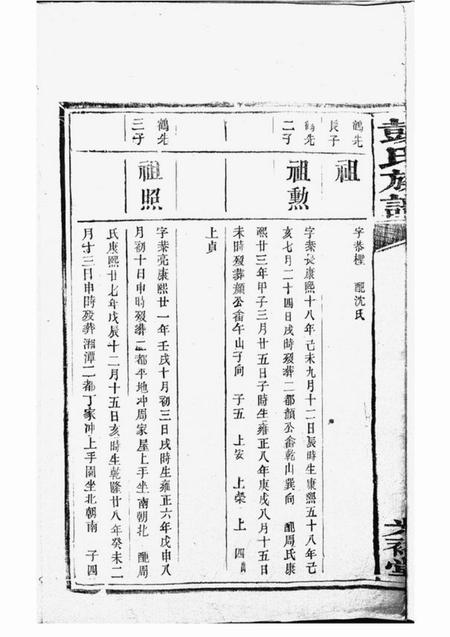 彭氏族譜
鶴先長子
祖
字恭樫 配沈氏
鶴先二子
祖勲
字葉長康熙十八年己未九月十二日辰時生康熙五十八年己
亥七月二十四日戌時歿葬二都顏公畬乾山巽向 配周氏康
熙廿三年甲子三月廿五日子時生雍正八年庚戌八月十五日
未時歿葬顏公畬午山子向 子五 上安 上榮 上
上貞
鶴先三子
祖照
字葉亮康熙廿一年壬戌十月初三日戌時生雍正六年戊申八
月初十日申時歿葬二都平地冲周家屋上手坐南朝北 配周
氏康熙廿七年戊辰十二月十五日亥時生乾隆廿八年癸未二
月十三日申時歿葬湘潭二都丁家冲上手園坐北朝南 子四